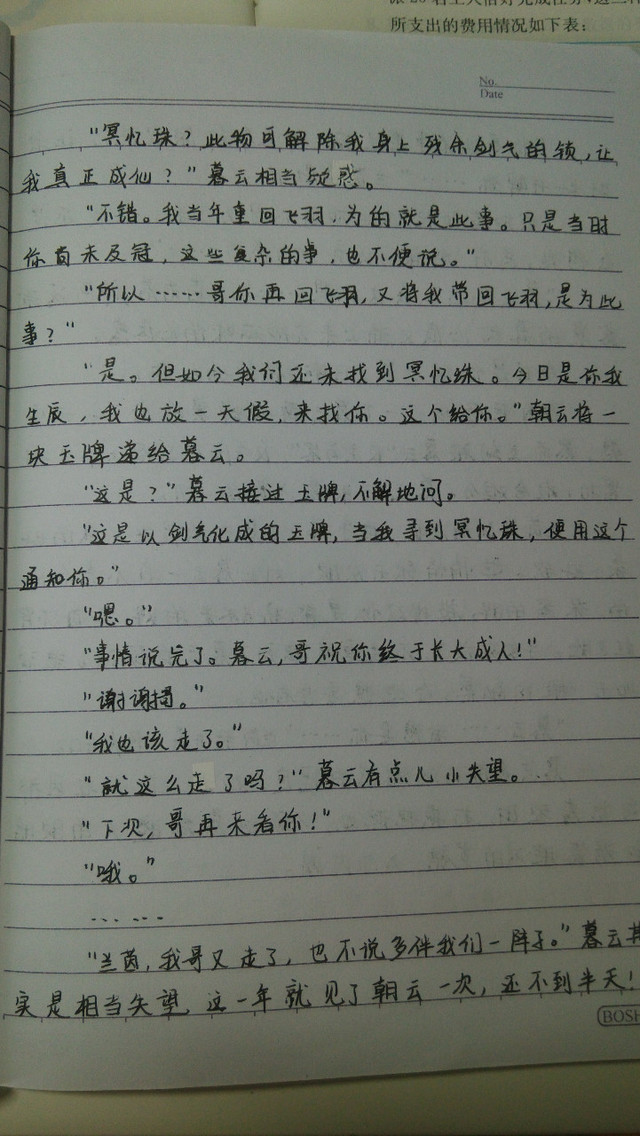 所支出的费用情况如下表：
No.
Date
"冥忆珠？此物可解除我身上残余剑气的锁，让
我真正成仙？"暮云相当疑惑。
"不错。我当年重回飞羽，为的就是此事。只是当时
你尚未及冠，这些复杂的事，也不便说。"
"所以……哥你再回飞羽，又将我带回飞羽，是为此
事？"
"是。但如今我们还未找到冥忆珠。今日是你我
生辰，我也放一天假，来找你。这个给你。"朝云将一
块玉牌递给暮云。
"这是？"暮云接过玉牌，不解地问。
"这是以剑气化成的玉牌，当我寻到冥忆珠，便用这个
通知你。"
"嗯。"
"事情说完了。暮云，哥祝你终于长大成人！"
"谢谢哥。"
"我也该走了。"
"就这么走了吗？"暮云有点儿小失望。
"下次，哥再来看你！"
"哦。"
……
"兰茵，我哥又走了，也不说多伴我们一阵子。"暮云其
实是相当失望，这一年就见了朝云一次，还不到半天！
BOSH